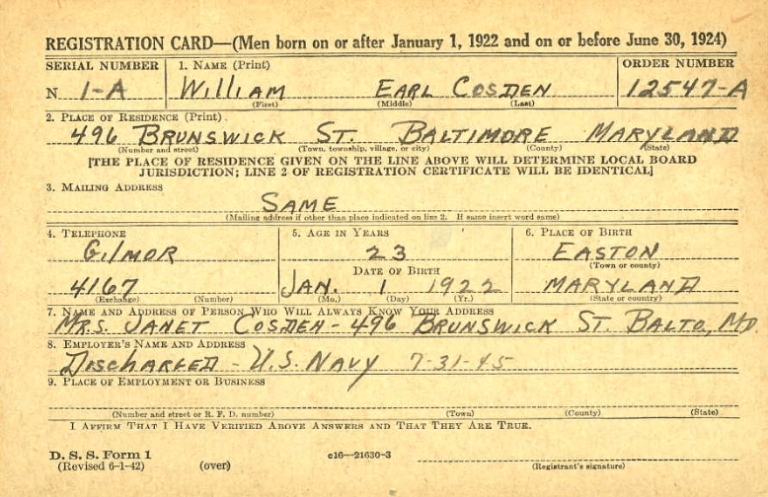 REGISTRATION CARD—(Men born on or after January 1, 1922 and on or before June 30, 1924)
SERIAL NUMBER 1. NAME (Print) ORDER NUMBER
N 1-A WILLIAM EARL COSDEN 12547-A
(First) (Middle) (Last)
2. PLACE OF RESIDENCE (Print)
496 BRUNSWICK ST. BALTIMORE MARYLAND
(Number and street) (Town, township, village, or city) (County) (State)
[THE PLACE OF RESIDENCE GIVEN ON THE LINE ABOVE WILL DETERMINE LOCAL BOARD
JURISDICTION; LINE 2 OF REGISTRATION CERTIFICATE WILL BE IDENTICAL]
3. MAILING ADDRESS
SAME
(Mailing address if other than place indicated on line 2. If same insert word same)
4. TELEPHONE 5. AGE IN YEARS 6. PLACE OF BIRTH
GILMOR 23 EASTON
(Town or county)
DATE OF BIRTH
4167 JAN. 1 1922 MARYLAND
(Exchange) (Number) (Mo.) (Day) (Yr.) (State or country)
7. NAME AND ADDRESS OF PERSON WHO WILL ALWAYS KNOW YOUR ADDRESS
MRS. JANET COSDEN - 496 BRUNSWICK ST. BALTO, MD.
8. EMPLOYER'S NAME AND ADDRESS
DISCHARGED - U.S. NAVY 7-31-45
9. PLACE OF EMPLOYMENT OR BUSINESS
(Number and street or R. F. D. number) (Town) (County) (State)
I AFFIRM THAT I HAVE VERIFIED ABOVE ANSWERS AND THAT THEY ARE TRUE.
D. S. S. Form 1
(Revised 6-1-42) (over) c16—21630-3
(Registrant's signature)